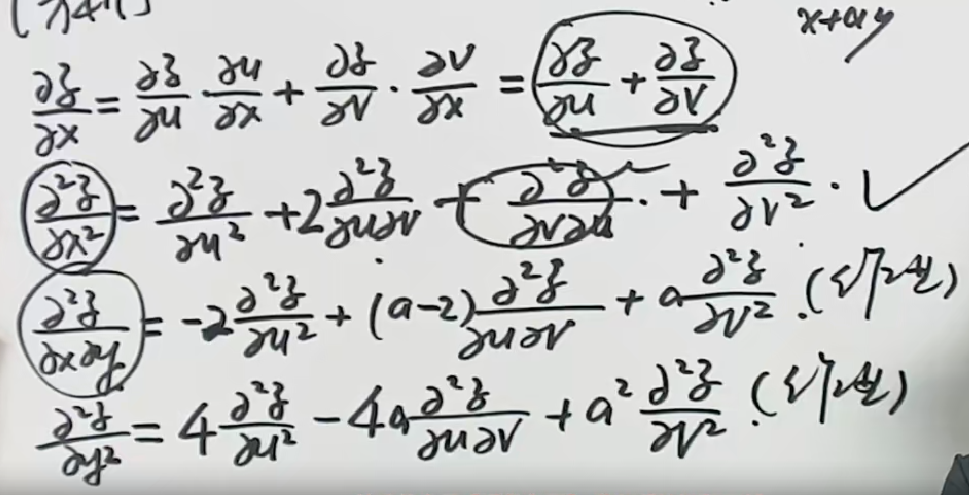 x+ay
∂z/∂x = ∂z/∂u · ∂u/∂x + ∂z/∂v · ∂v/∂x = ∂z/∂u + ∂z/∂v
∂²z/∂x² = ∂²z/∂u² + 2 ∂²z/∂u∂v + ∂²z/∂v∂u · + ∂²z/∂v² · ✓
∂²z/∂x∂y = -2 ∂²z/∂u² + (a-2) ∂²z/∂u∂v + a ∂²z/∂v² .
∂²z/∂y² = 4 ∂²z/∂u² - 4a ∂²z/∂u∂v + a² ∂²z/∂v² .